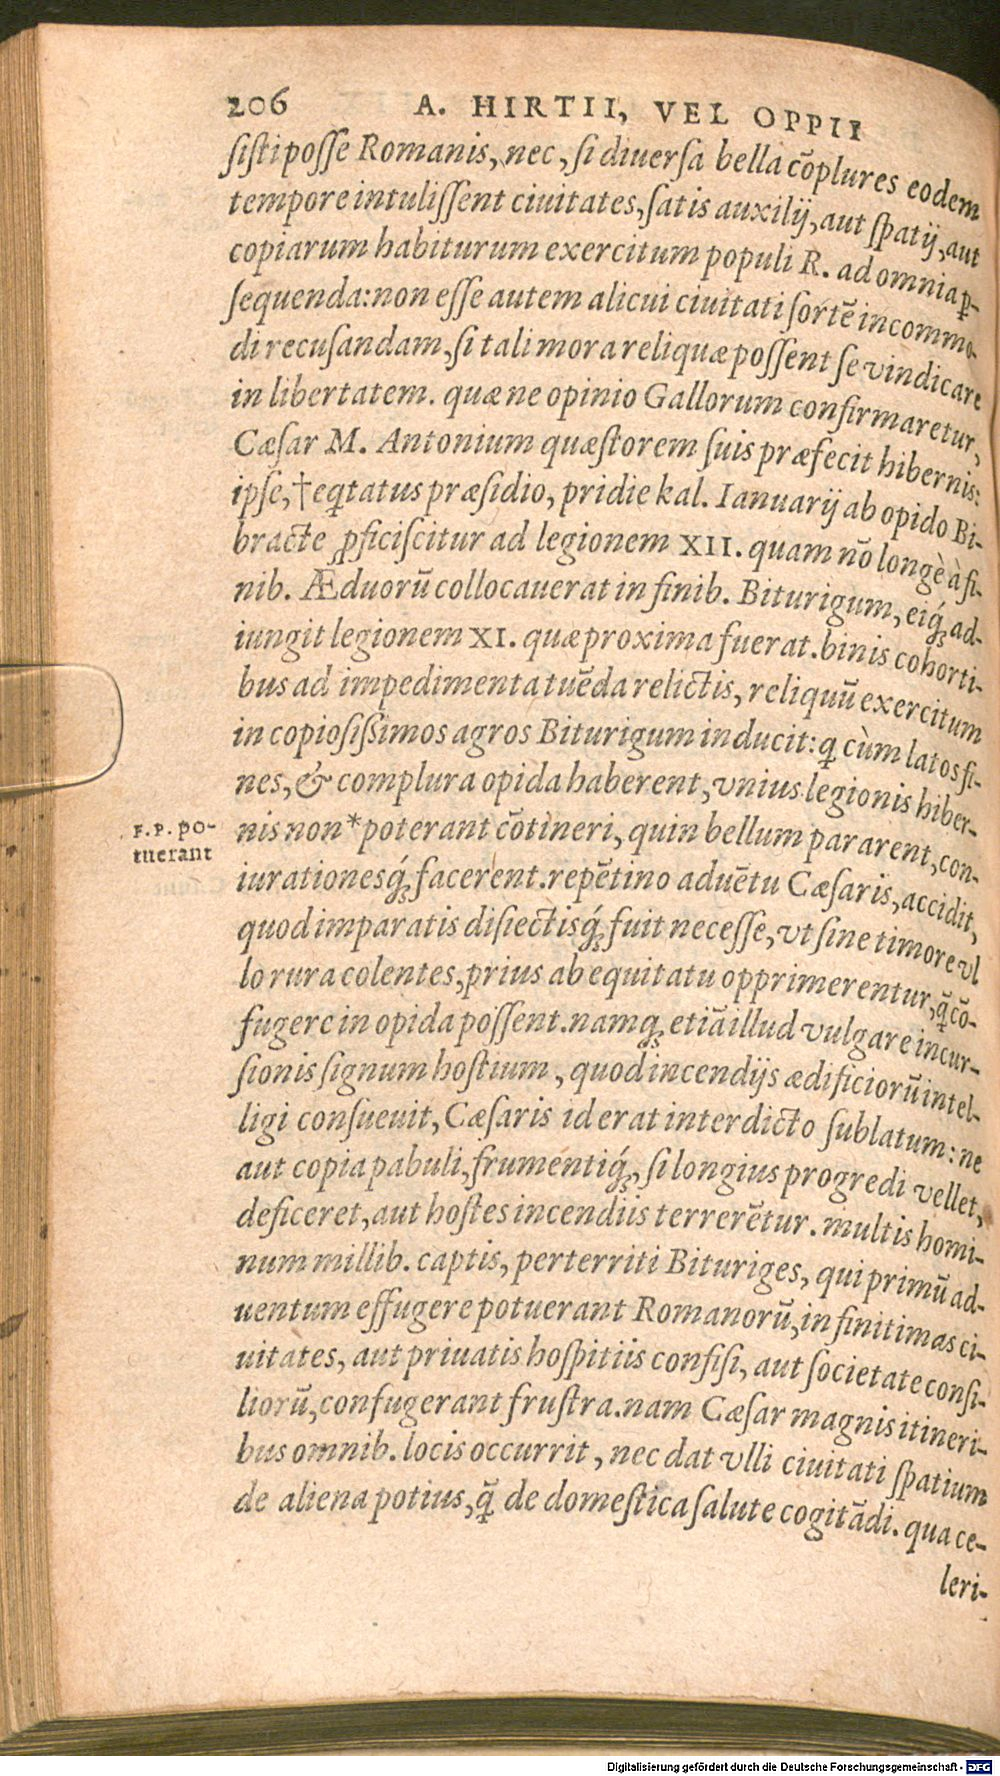 206 A. HIRTII, VEL OPPII
ſiſti poſſe Romanis, nec, ſi diuerſa bella cōplures eodem
tempore intuliſſent ciuitates, ſatis auxilij, aut ſpatij, aut
copiarum habiturum exercitum populi R. ad omnia ꝑ-
ſequenda: non eſſe autem alicui ciuitati ſortē incommo-
di recuſandam, ſi tali mora reliquæ poſſent ſe vindicare
in libertatem. quæ ne opinio Gallorum confirmaretur,
Cæſar M. Antonium quæſtorem ſuis præfecit hibernis:
ipſe, †eq̃tatus præſidio, pridie kal. Ianuarij ab opido Bi-
bracte ꝓficiſcitur ad legionem XII. quam nō longè à fi-
nib. Æduorū collocauerat in finib. Biturigum, eiq́ꝫ ad-
iungit legionem XI. quæ proxima fuerat. binis cohorti-
bus ad impedimenta tuēda relictis, reliquū exercitum
in copioſiſſimos agros Biturigum inducit: q̃ cùm latos fi-
nes, & complura opida haberent, vnius legionis hiber-
nis non *poterant cōtineri, quin bellum pararent, con-
F.P. po-
tuerant
iurationesq́ꝫ facerent. repētino aduētu Cæſaris, accidit,
quod imparatis diſiectisq́ꝫ fuit neceſſe, vt ſine timore vl
lo rura colentes, prius ab equitatu opprimerentur, q̃ cō-
fugere in opida poſſent. namqꝫ etiā illud vulgare incur-
ſionis ſignum hoſtium, quod incendijs ædificiorū intel-
ligi conſueuit, Cæſaris id erat interdicto ſublatum: ne
aut copia pabuli, frumentiq́ꝫ, ſi longius progredi vellet,
deficeret, aut hoſtes incendiis terrerētur. multis homi-
num millib. captis, perterriti Bituriges, qui primū ad-
uentum effugere potuerant Romanorū, in finitimas ci-
uitates, aut priuatis hoſpitiis confiſi, aut ſocietate conſi-
liorū, confugerant fruſtra. nam Cæſar magnis itineri-
bus omnib. locis occurrit, nec dat vlli ciuitati ſpatium
de aliena potius, q̃ de domeſtica ſalute cogitādi. qua ce-
leri-
Digitalisierung gefördert durch die Deutsche Forschungsgemeinschaft - DFG